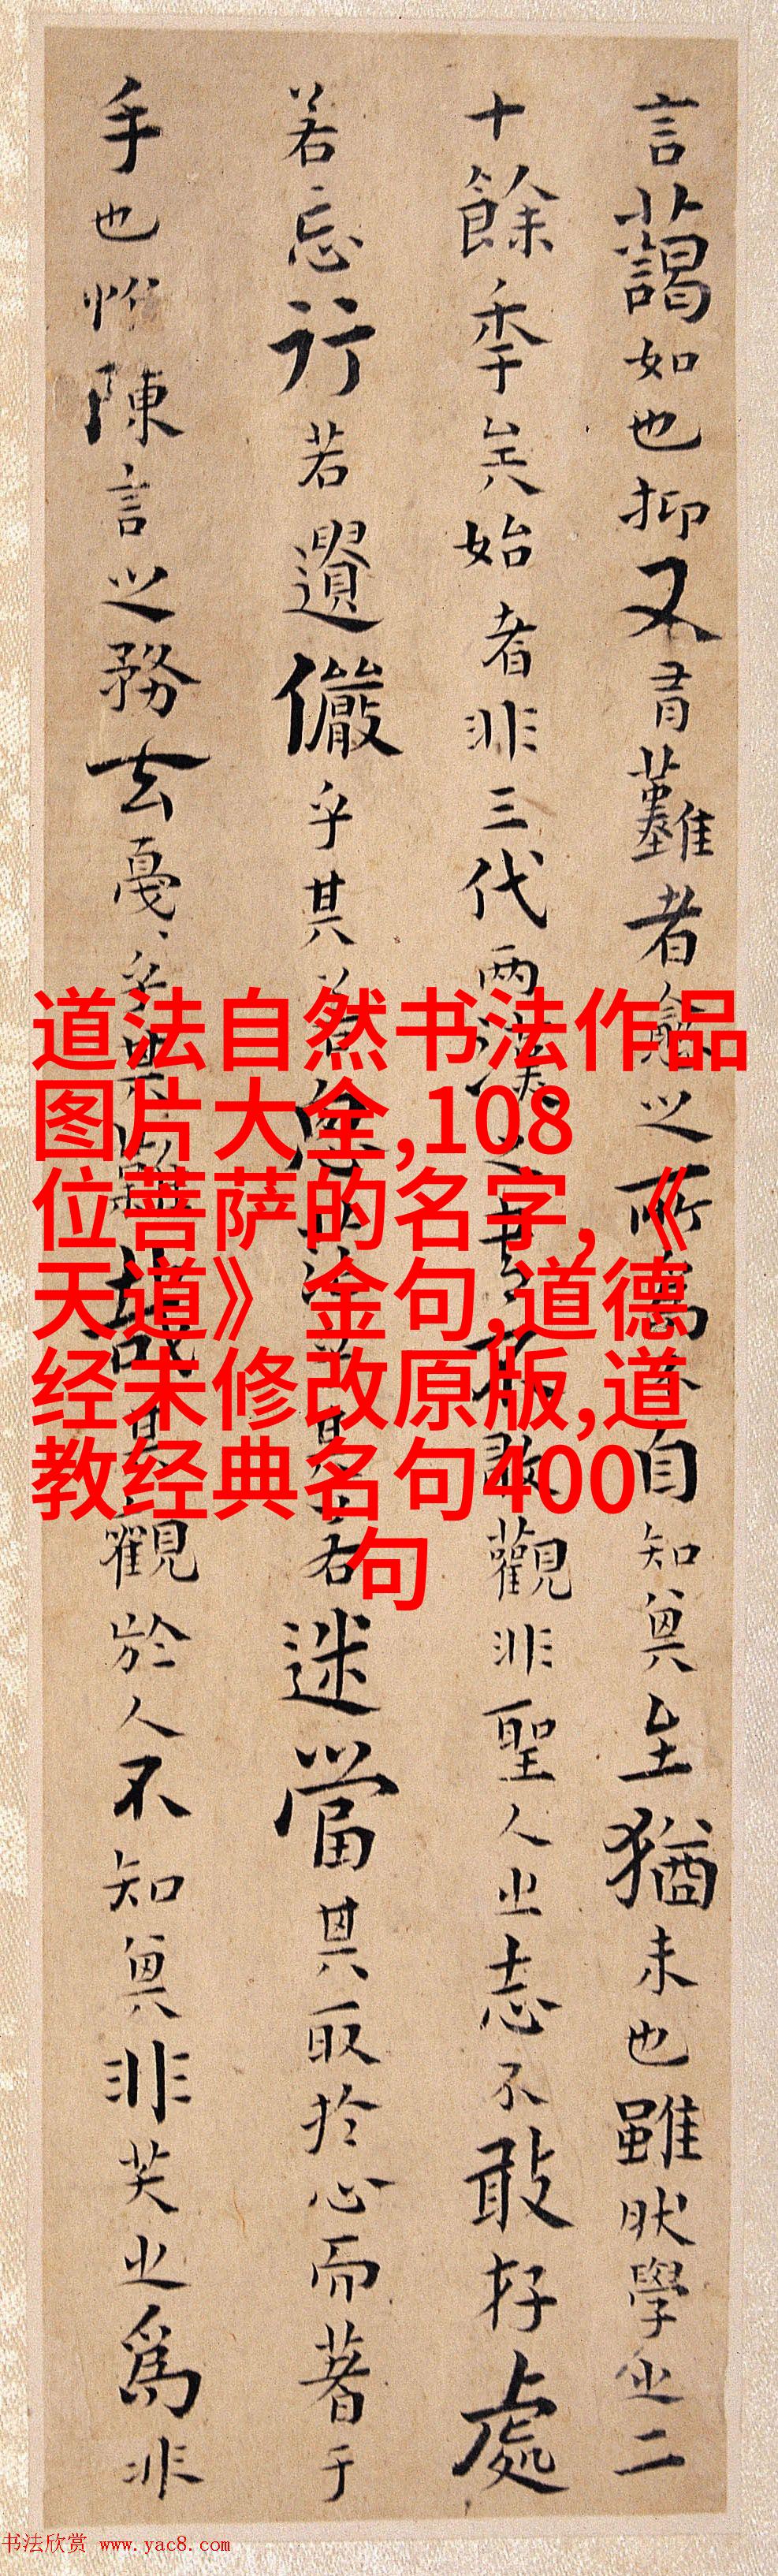 言藹如也抑又有難者愈之所為不自知其至猶未也雖然學之二
十餘秊矣始者非三代兩漢之書不敢觀非聖人之志不敢存處
若忘行若遺儼乎其若思茫乎其若迷當其取於心而著于
手也惟陳言之務去戛戛乎其難哉其觀於人不知其非笑之為非
道法自然书法作品
图片大全,108
位菩萨的名字,《
天道》金句,道德
经未修改原版,道
教经典名句400
句
书法欣赏 www.yac8.com